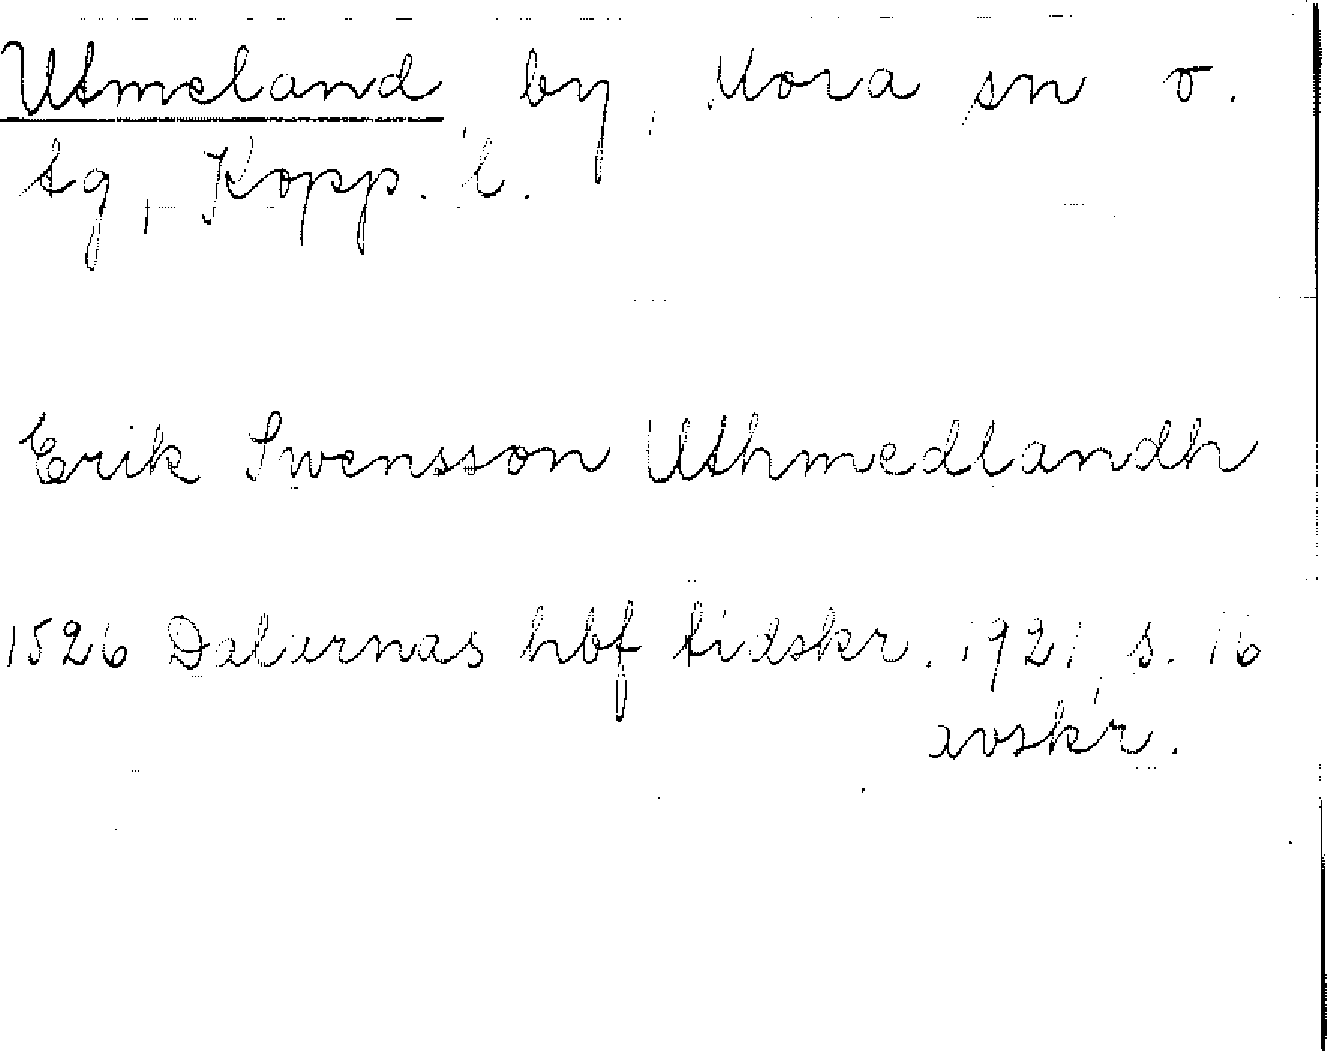 Utmeland by, Mora sn o.
tg, Kopp. l.
Erik Swensson Uthmedlandh
1526 Dalarnas hbf tidskr. 1921, s. 16
avskr.